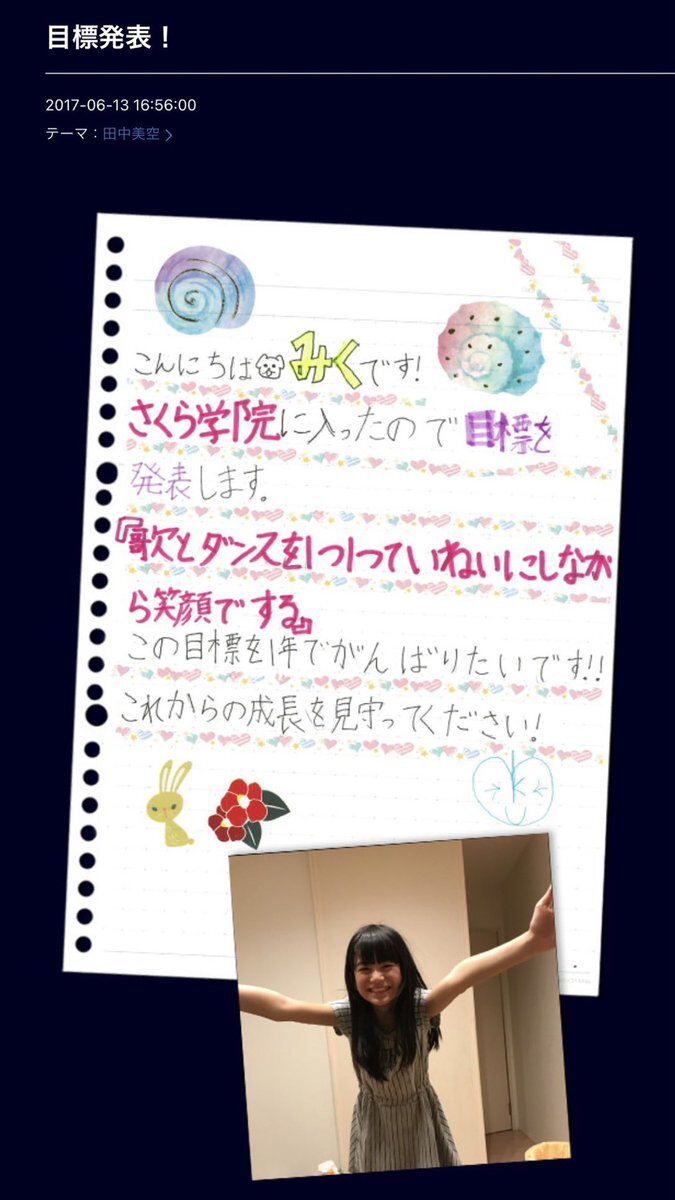 目標発表！
2017-06-13 16:56:00
テーマ：田中美空
こんにちはみくです!
さくら学院に入ったので目標を
発表します。
『歌とダンスを1つ1つていねいにしなが
ら笑顔でする』
この目標を1年でがんばりたいです!!
これからの成長を見守ってください!